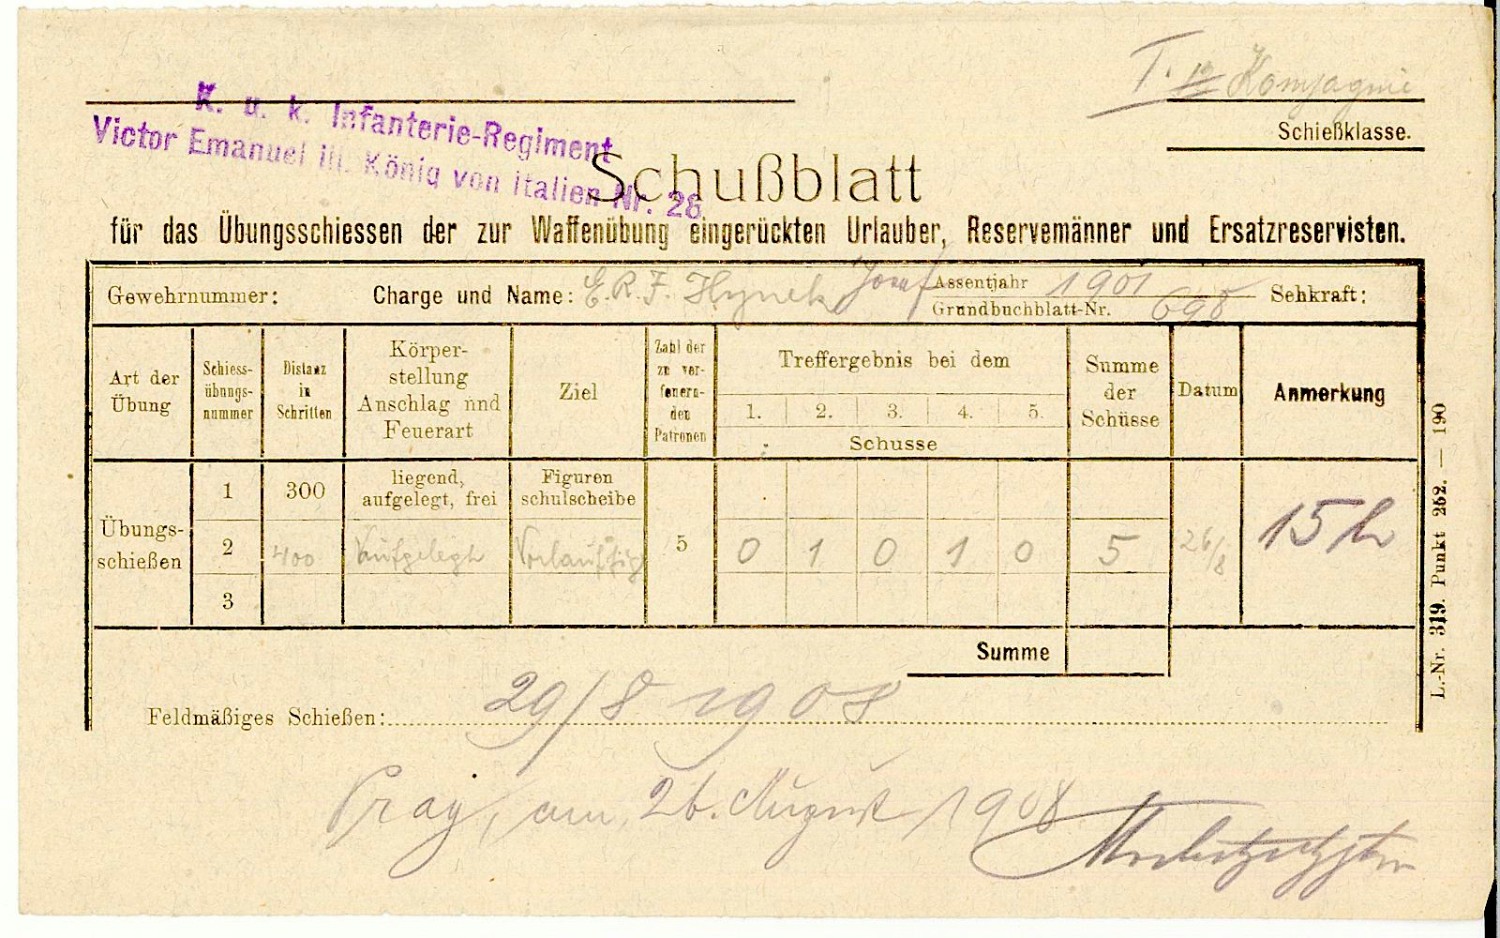 I. 12 Kompagnie
Schießklasse.
K. u. k. Infanterie-Regiment
Victor Emanuel III. König von Italien Nr. 28
Schußblatt
für das Übungsschiessen der zur Waffenübung eingerückten Urlauber, Reservemänner und Ersatzreservisten.
Gewehrnummer: Charge und Name: E. R. F. Hynek Josef Assentjahr 1901 Sehkraft:
Grundbuchblatt-Nr. 698
Art der Übung
Schiess-übungs-nummer
Distanz in Schritten
Körper-stellung Anschlag und Feuerart
Ziel
Zahl der zu ver-feuern-den Patronen
Treffergebnis bei dem
1. 2. 3. 4. 5.
Schusse
Summe der Schüsse
Datum
Anmerkung
Übungs-schießen
1 300 liegend, aufgelegt, frei Figuren schulscheibe
2 400 aufgelegt 5 0 1 0 1 0 5 26/8 15 h
3
Summe
Feldmäßiges Schießen: 29/8 1908
Prag, am 26. August 1908
L.-Nr. 319. Punkt 252. — 190